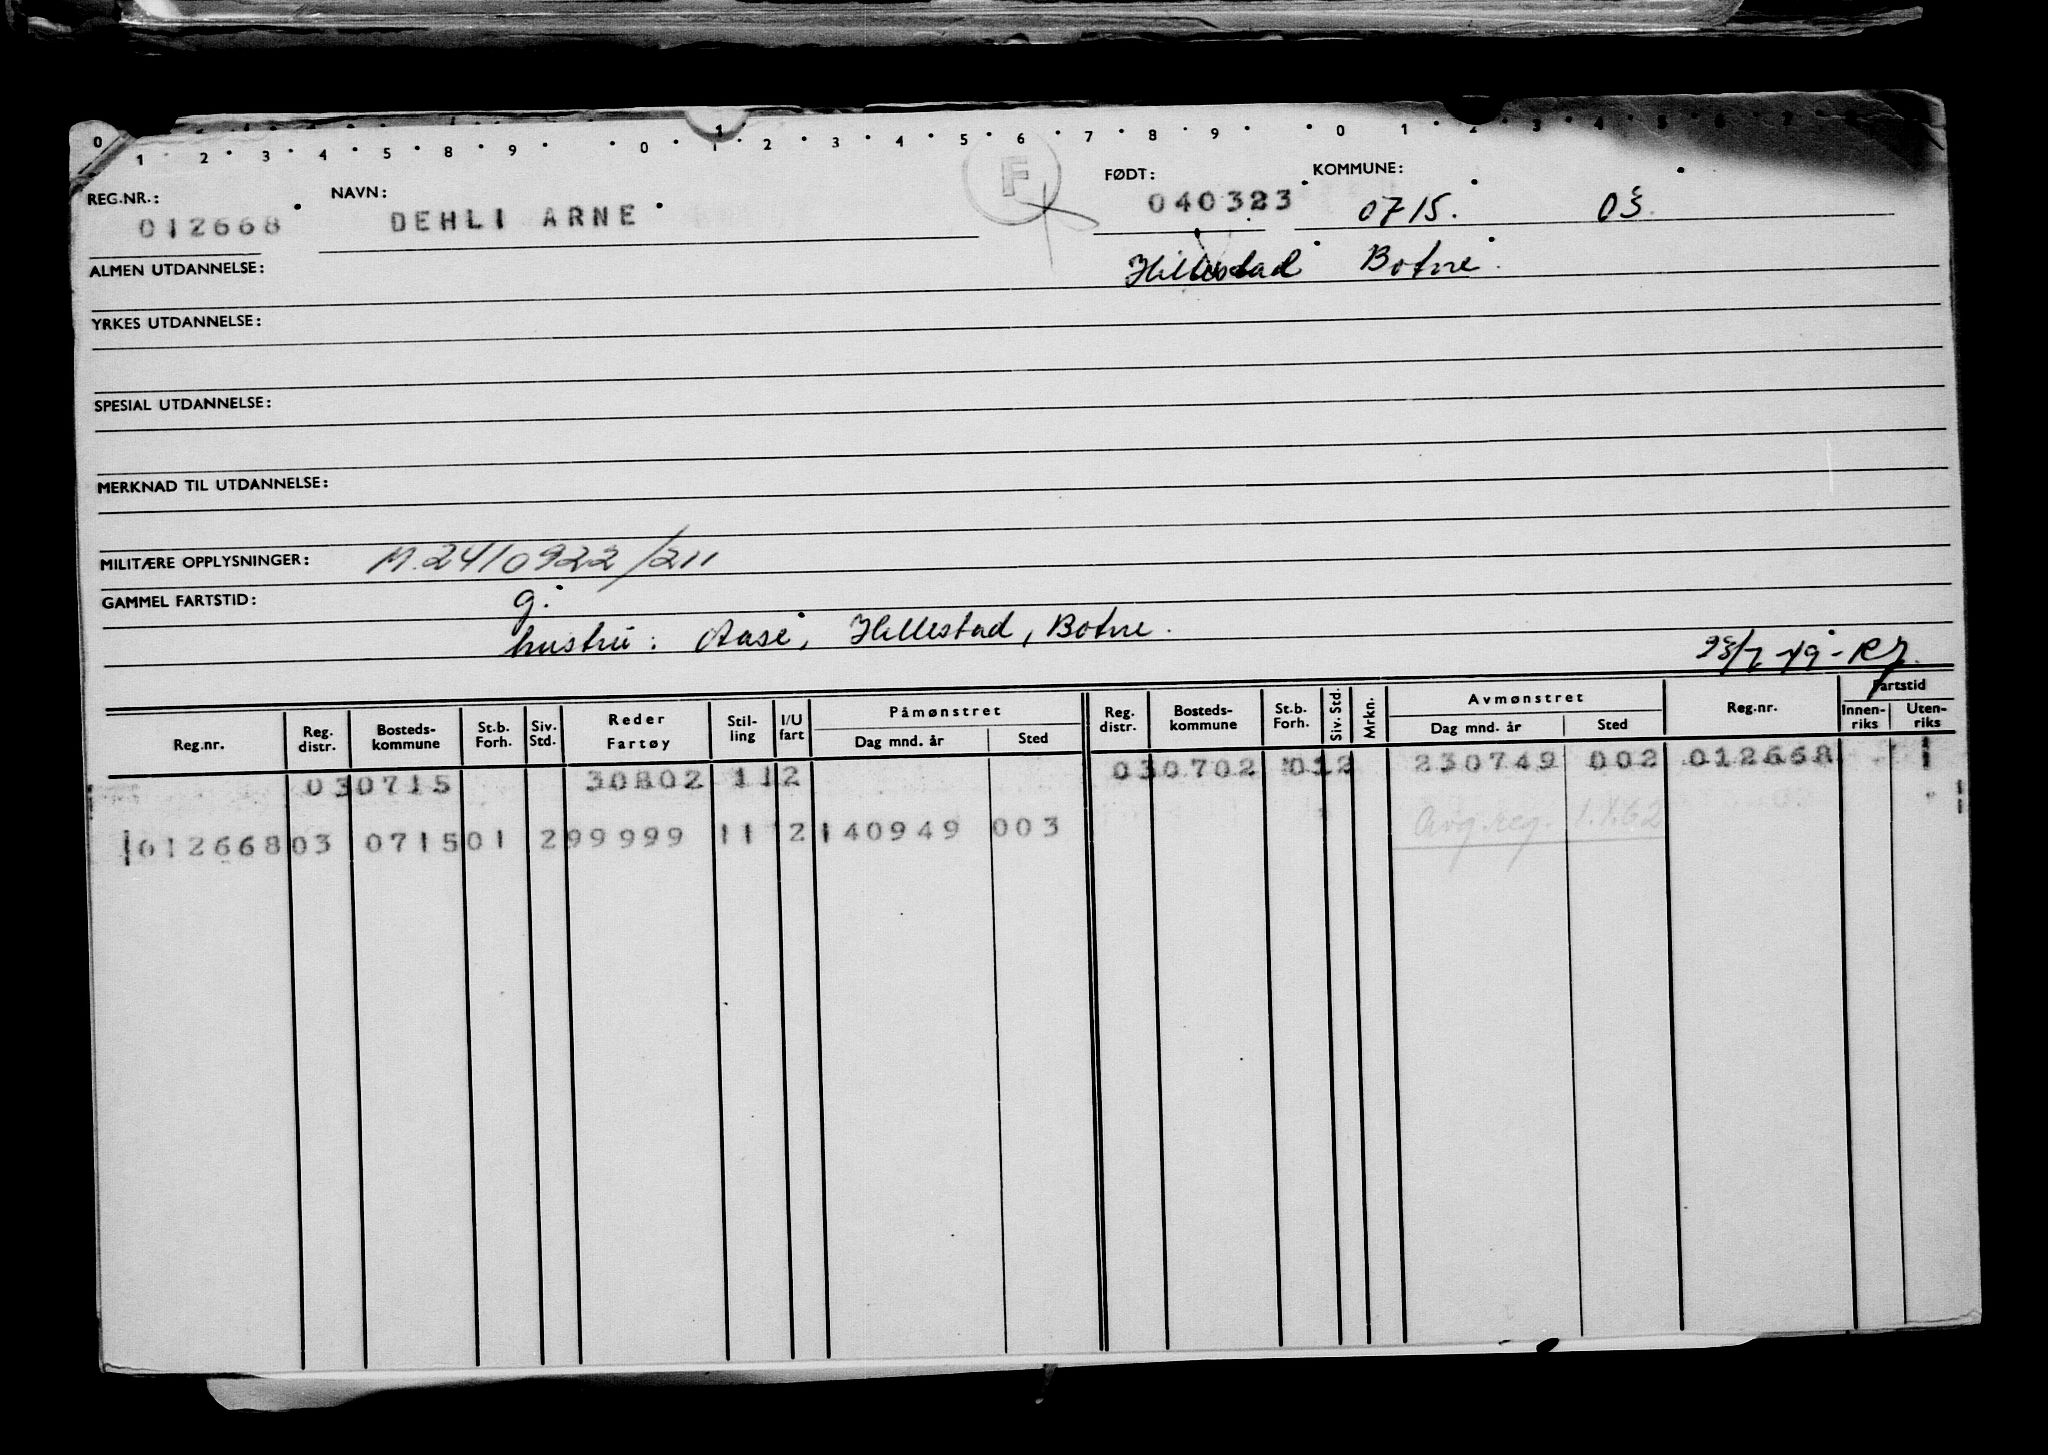 0 1 2 3 4 5 8 9 0 1 2 3 4 5 6 7 8 9 0 1 2 3 4 5 6 7
REG.NR.: NAVN: F FØDT: KOMMUNE:
012668 DEHLI ARNE 040323 0715. 03.
ALMEN UTDANNELSE: Hillestad Botne.
YRKES UTDANNELSE:
SPESIAL UTDANNELSE:
MERKNAD TIL UTDANNELSE:
MILITÆRE OPPLYSNINGER: M.2410922/211
GAMMEL FARTSTID: g.
hustru: Aase, Hillestad, Botne.
23/7-49-
Reg.nr. Reg. distr. Bosteds-kommune St.b. Forh. Siv. Std. Reder Fartøy Stil-ling I/U fart Påmønstret Dag mnd. år Sted Reg. distr. Bosteds-kommune St.b. Forh. Siv. Std. Mrkn. Avmønstret Dag mnd. år Sted Reg.nr. Fartstid Innen-riks Uten-riks
030715 30802 112 030702 012 230749 002 012668 1
012668 03 0715 01 2 99999 11 2 140949 003 Avg.reg. 1.X.62